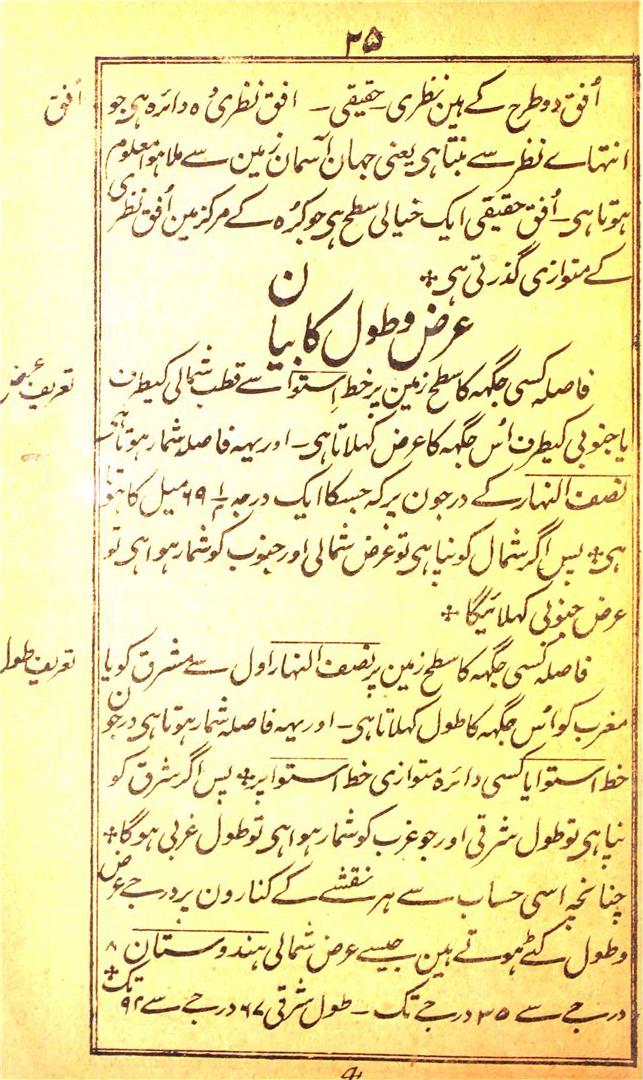 ۲۵
اُفق
اُفق دو طرح کے ہین نظری ـ حقیقی ـ افق نظری وُہ دائرہ ہی جو
انتہاے نظر سے بنتا ہی یعنی جہان آسمان زمین سے ملا ہوا معلوم
ہوتا ہی ـ اُفق حقیقی ایک خیالی سطح ہی جو کرُہ کے مرکز مین اُفق نظری
کے متوازی گذرتی ہی
عرض و طول کا بیان
تعریف عرض
فاصلہ کسی جگہہ کا سطح زمین پر خط اِستوا سے قطب شمالی کیطرف
یا جنوبی کیطرف اُس جگہہ کا عرض کہلاتا ہی ـ اور یہہ فاصلہ شمار ہوتا ہی
نصف النہار کے درجون پر کہ جسکا ایک درجہ ۶۹ ۱/۲ میل کا ہوتا
ہی پس اگر شمال کو نپا ہی تو عرض شمالی اور جنوب کو شمار ہوا ہی تو
عرض جنوبی کہلائیگا
تعریف طول
فاصلہ کسی جگہہ کا سطح زمین پر نصف النہار اول سے مشرق کو یا
مغرب کو اُس جگہہ کا طول کہلاتا ہی ـ اور یہہ فاصلہ شمار ہوتا ہی درجون
خط استوا یا کسی دائرہ متوازی خط استوا پر پس اگر شرق کو
نپا ہی تو طول شرقی اور جو غرب کو شمار ہوا ہی تو طول غربی ہوگا
چنانچہ اسی حساب سے ہر نقشے کے کنارون پر درجے عرض
و طول کٹے ہوتے ہین جیسے عرض شمالی ہندوستان ۸
درجے سے ۳۵ درجے تک ـ طول شرقی ۶۷ درجے سے ۹۲ تک